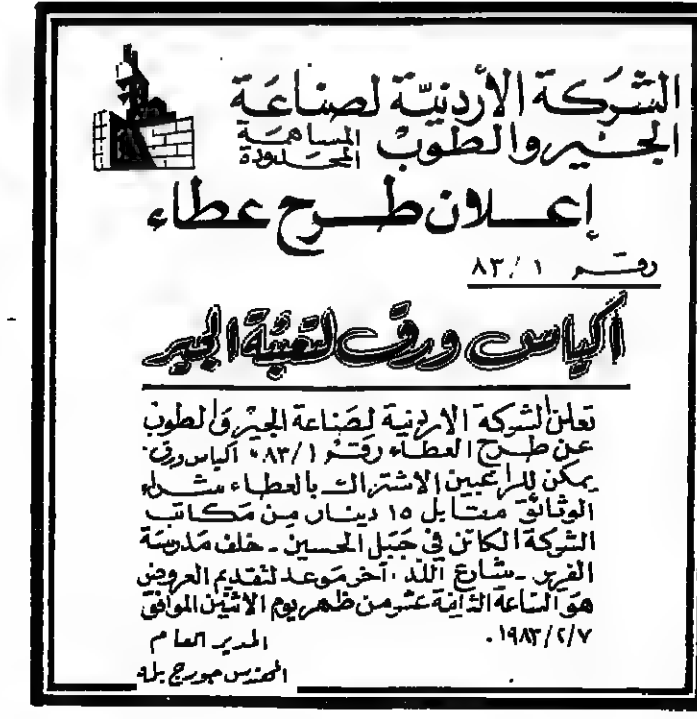 الشركة الأردنية لصناعة
الجير والطوب المساهمة المحدودة
إعلان طرح عطاء
رقم ١ /٨٣
أكياس ورق لتعبئة الجير
تعلن الشركة الاردنية لصناعة الجير والطوب
عن طرح العطاء رقم ٨٣/١ أكياس ورق.
يمكن للراغبين الاشتراك بالعطاء بشراء
الوثائق مقابل ١٥ دينار من مكاتب
الشركة الكائن في جبل الحسين - خلف مدرسة
الفرير - شارع اللد . آخر موعد لتقديم العروض
هو الساعة الثانية عشر من ظهر يوم الاثنين الموافق
١٩٨٣/٢/٧ .
المدير العام
المهندس جورج